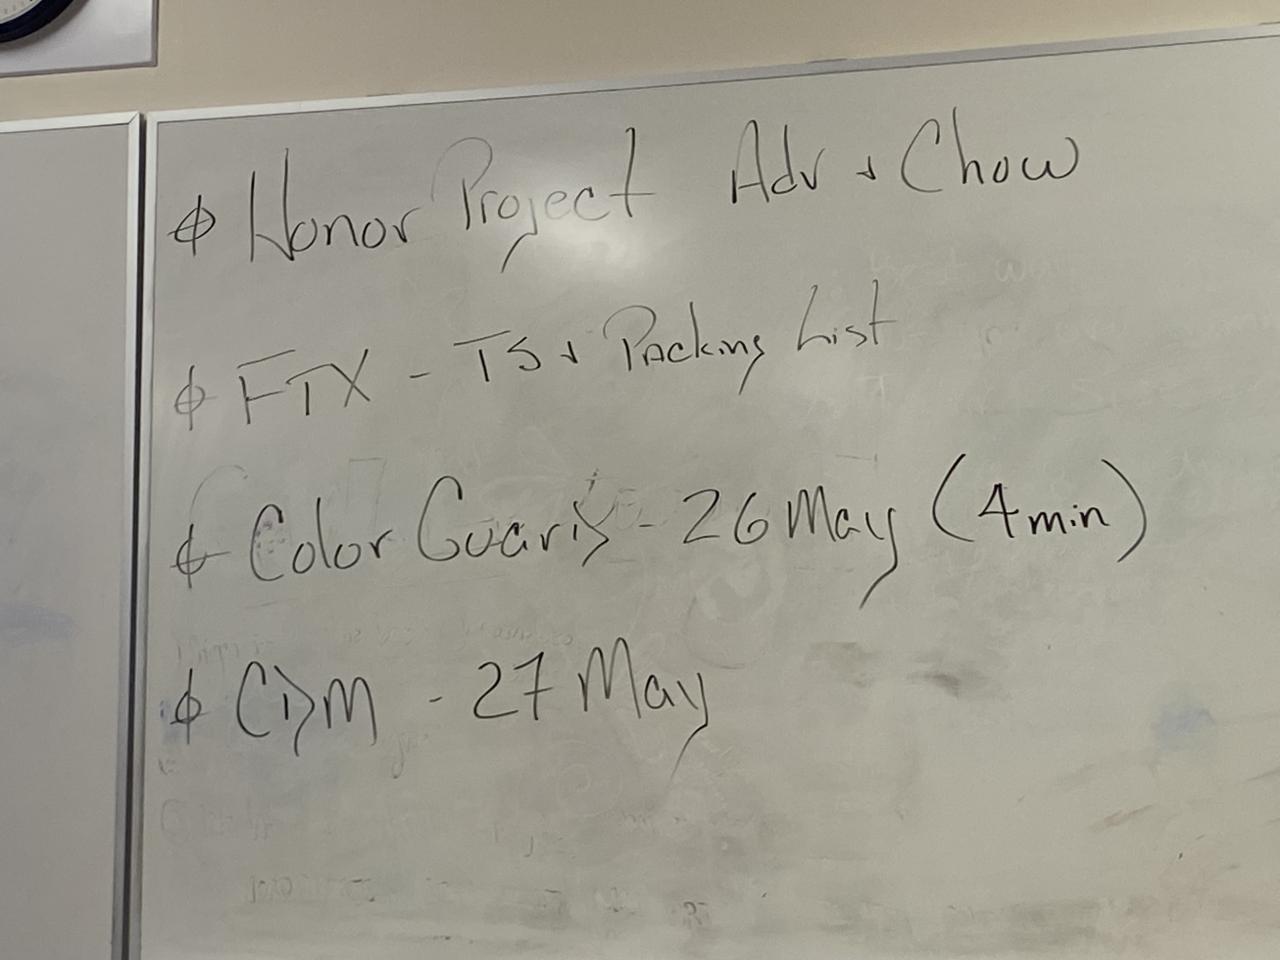 Honor Project Adv + Chow
FTX - TS + Packing List
Color Guard - 26 May (4min)
CDM - 27 May